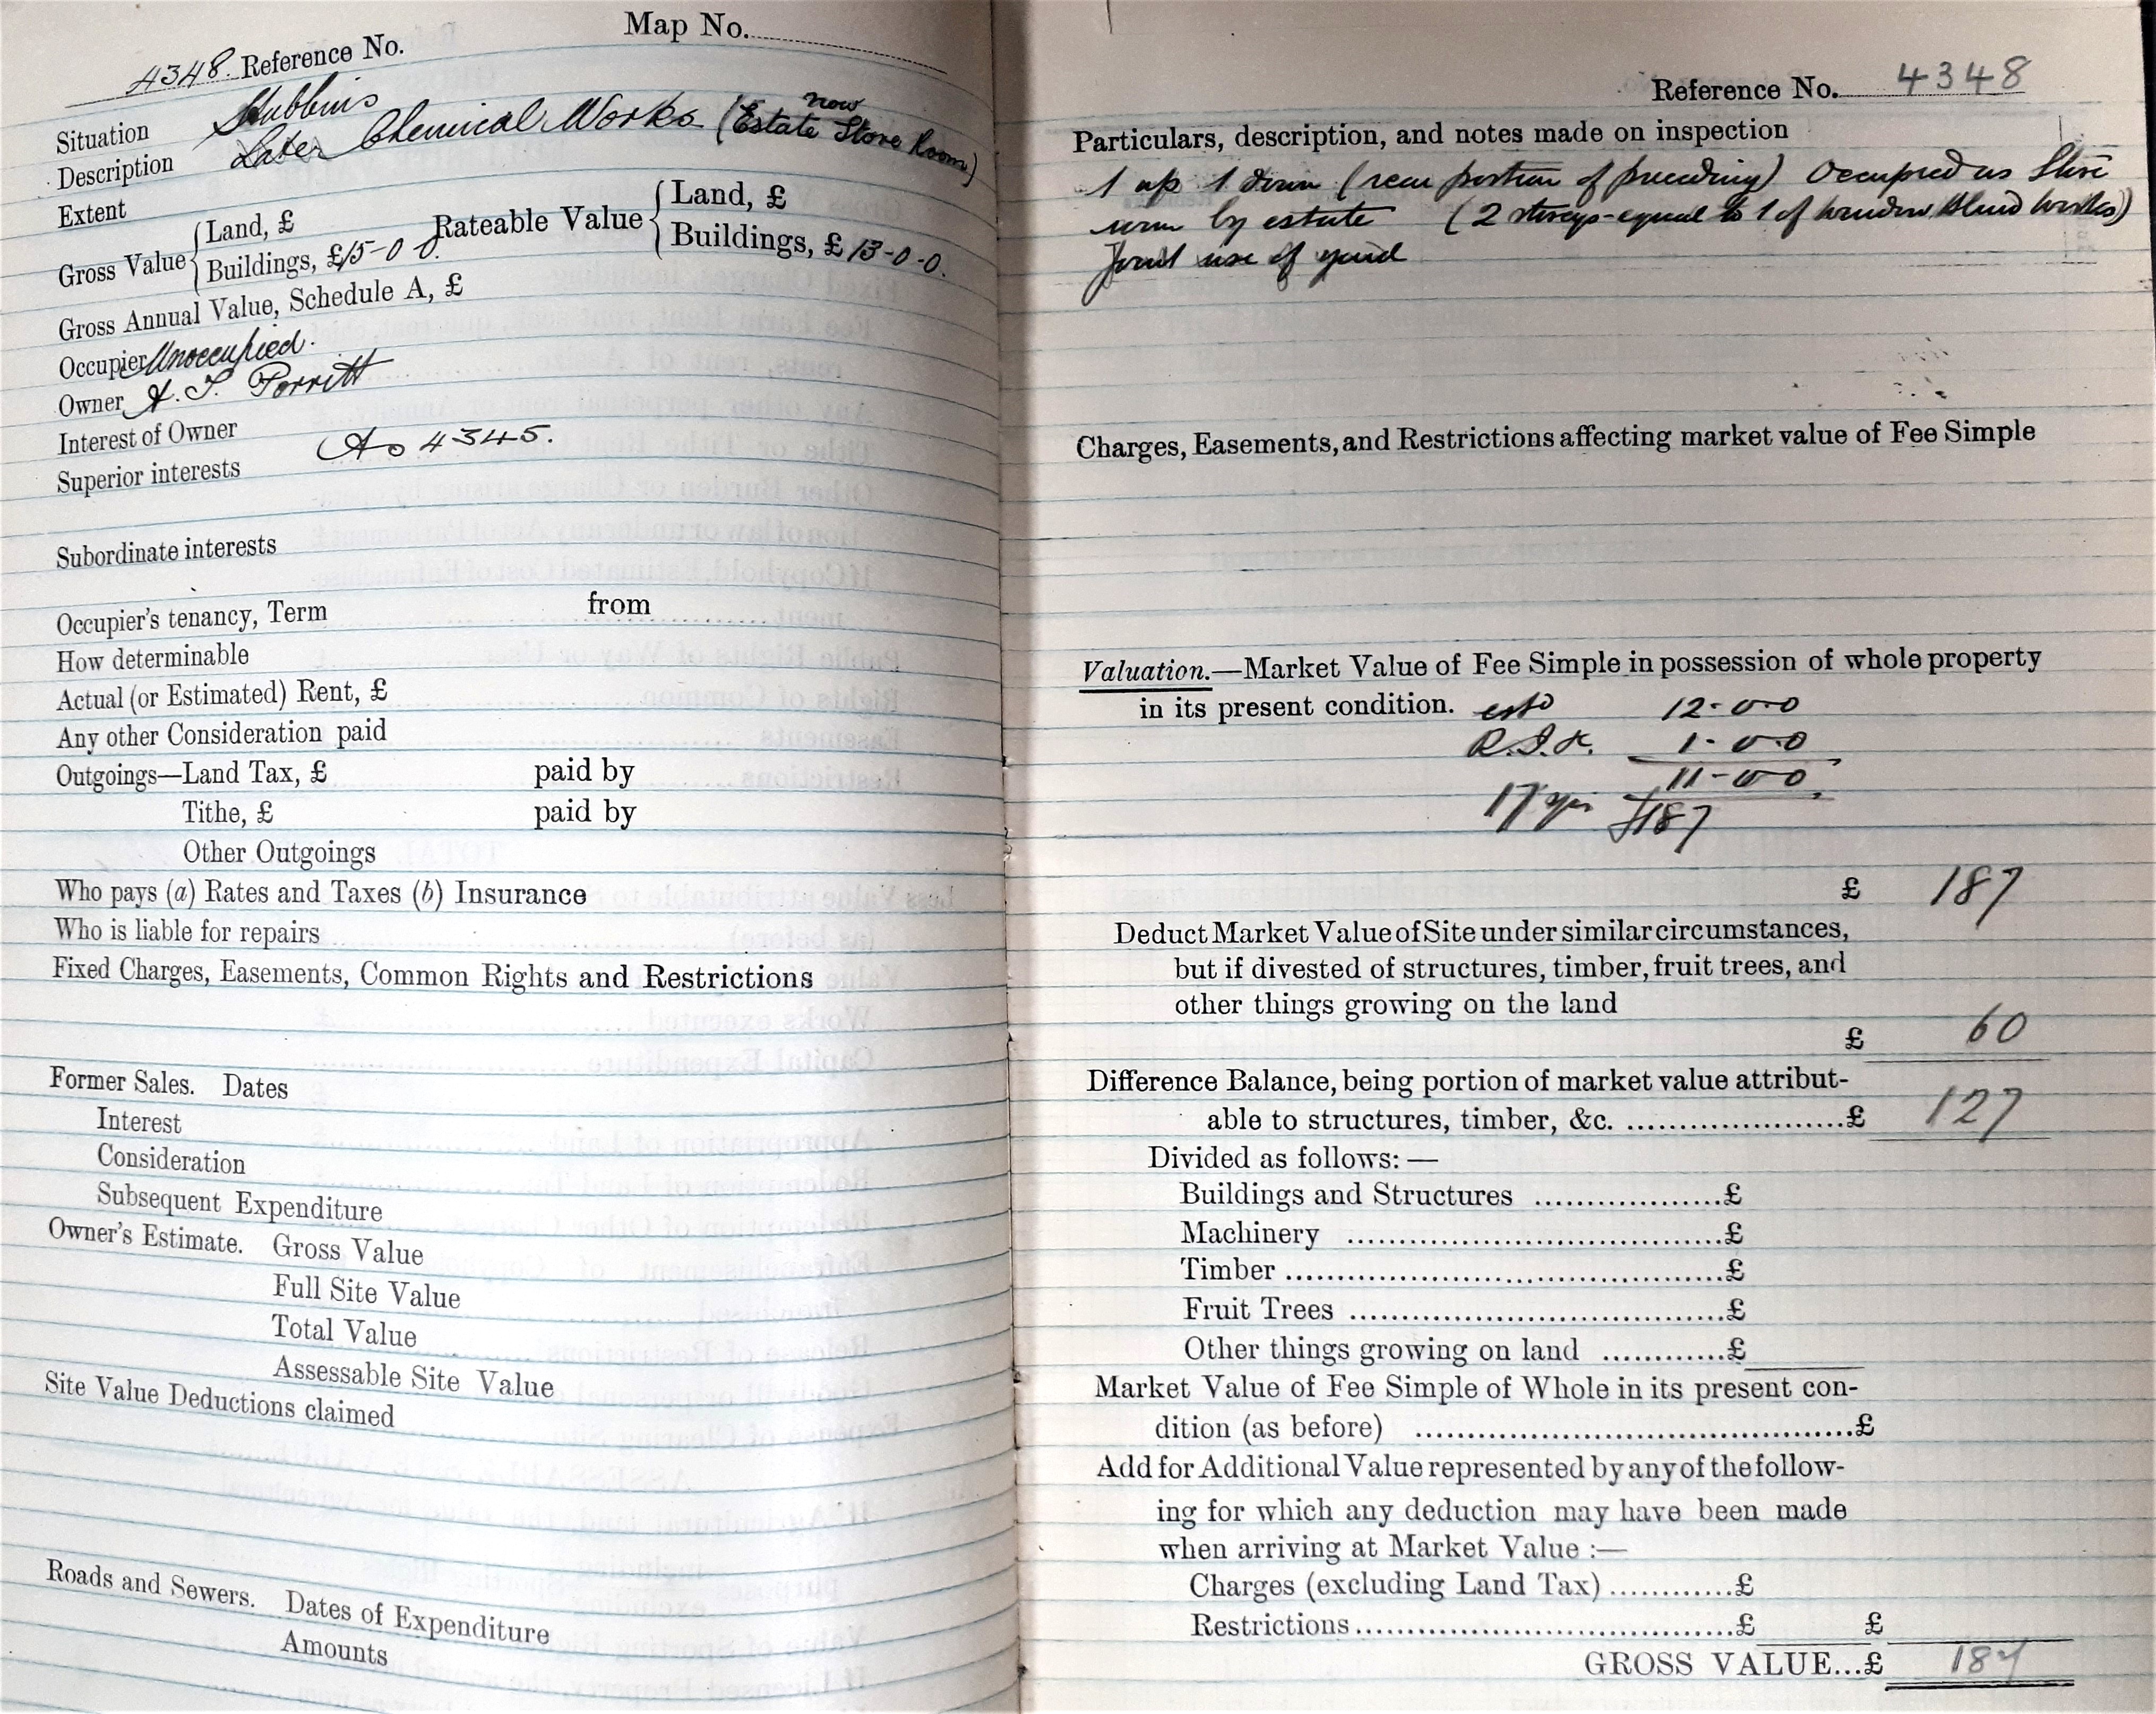 Map No.
4348. Reference No.
Situation Stubbins
Description Later Chemical Works (now Estate Store Room)
Extent
Gross Value { Land, £
Buildings, £15-0-0.
Rateable Value { Land, £
Buildings, £13-0-0.
Gross Annual Value, Schedule A, £
Occupier Unoccupied.
Owner A. T. Porritt
Interest of Owner
As 4345.
Superior interests
Subordinate interests
Occupier's tenancy, Term from
How determinable
Actual (or Estimated) Rent, £
Any other Consideration paid
Outgoings—Land Tax, £ paid by
Tithe, £ paid by
Other Outgoings
Who pays (a) Rates and Taxes (b) Insurance
Who is liable for repairs
Fixed Charges, Easements, Common Rights and Restrictions
Former Sales. Dates
Interest
Consideration
Subsequent Expenditure
Owner's Estimate. Gross Value
Full Site Value
Total Value
Assessable Site Value
Site Value Deductions claimed
Roads and Sewers. Dates of Expenditure
Amounts
Reference No. 4348
Particulars, description, and notes made on inspection
1 up 1 down (rear portion of preceding) Occupied as Store
by estate (2 storeys-equal to 1 of window Blind Works)
Joint use of yard
Charges, Easements, and Restrictions affecting market value of Fee Simple
Valuation.—Market Value of Fee Simple in possession of whole property
in its present condition. 12-0-0
1-0-0
11-0-0
17 yrs £187
£ 187
Deduct Market Value of Site under similar circumstances,
but if divested of structures, timber, fruit trees, and
other things growing on the land
£ 60
Difference Balance, being portion of market value attribut-
able to structures, timber, &c. ....................£ 127
Divided as follows:—
Buildings and Structures ..................£
Machinery ....................................£
Timber ..........................................£
Fruit Trees ....................................£
Other things growing on land ............£
Market Value of Fee Simple of Whole in its present con-
dition (as before) ..........................................£
Add for Additional Value represented by any of the follow-
ing for which any deduction may have been made
when arriving at Market Value :—
Charges (excluding Land Tax) ............£
Restrictions....................................£ £
GROSS VALUE...£ 187